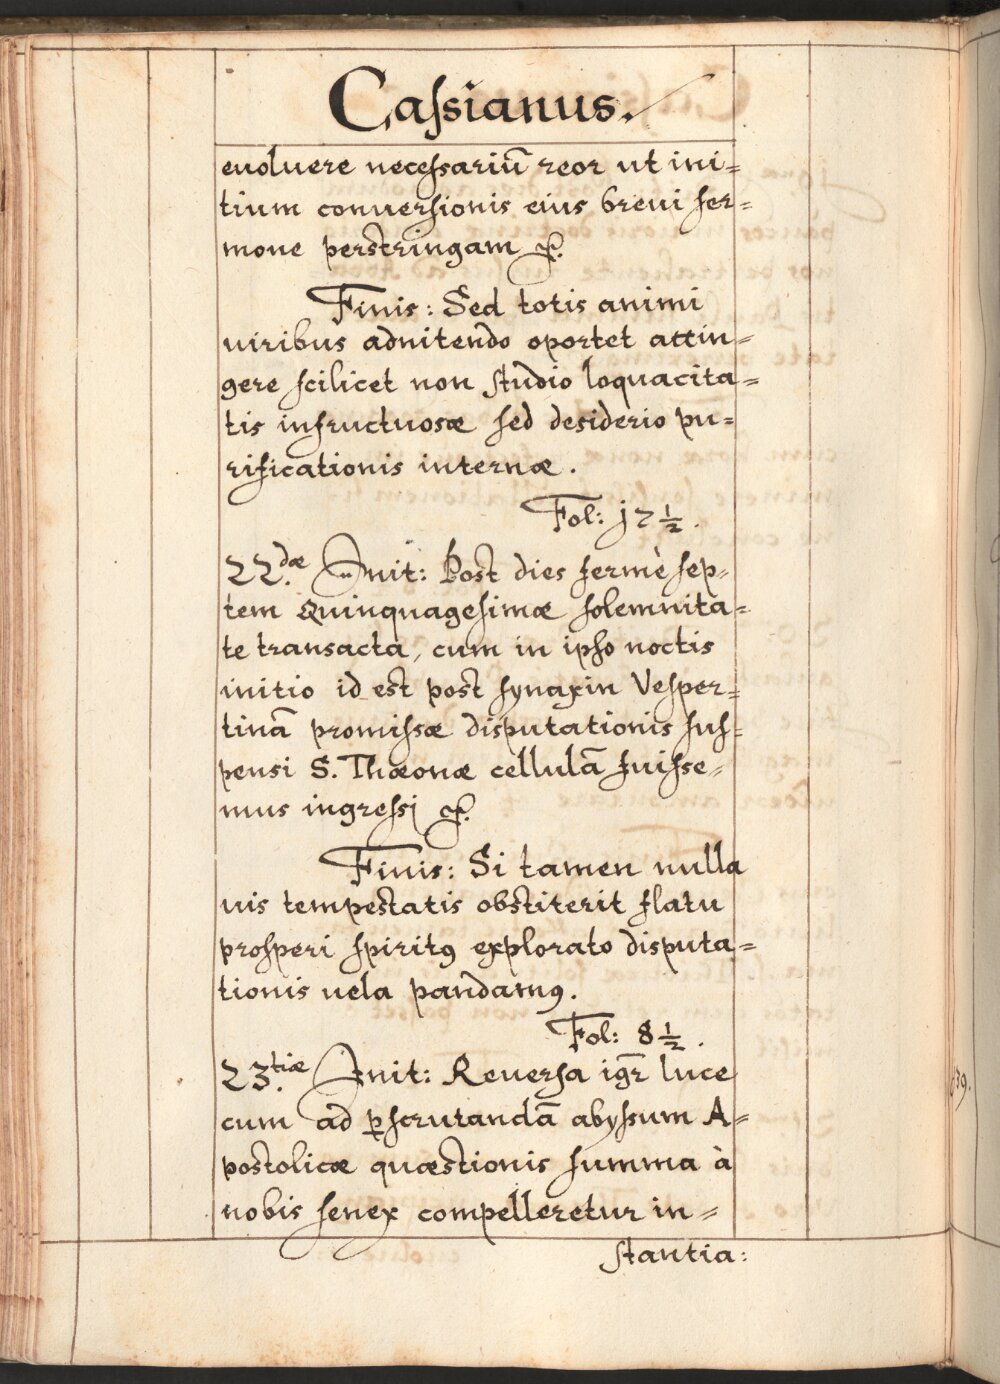 Cassianus.
evoluere necessariū reor ut ini=
tium conuersionis eius breui ser=
mone perstringam &.
Finis: Sed totis animi
uiribus adnitendo oportet attin=
gere scilicet non studio loquacita=
tis infructuosæ sed desiderio pu=
rificationis internæ.
Fol: j7½.
22.dæ Init: Post dies fermè sep=
tem Quinquagesimæ solemnita=
te transacta, cum in ipso noctis
initio id est post synaxin Vesper=
tinā promissæ disputationis sus=
pensi S. Thæonæ cellulā fuisse=
mus ingressi &.
Finis: Si tamen nulla
uis tempestatis obstiterit flatu
prosperi spiritꝰ explorato disputa=
tionis uela pandamꝰ.
Fol: 8½.
23.tiæ Init: Reuersa igr̄ luce
cum ad ꝑscrutandā abyssum A=
postolicæ quæstionis summa à
nobis senex compelleretur in=
stantia:
39.